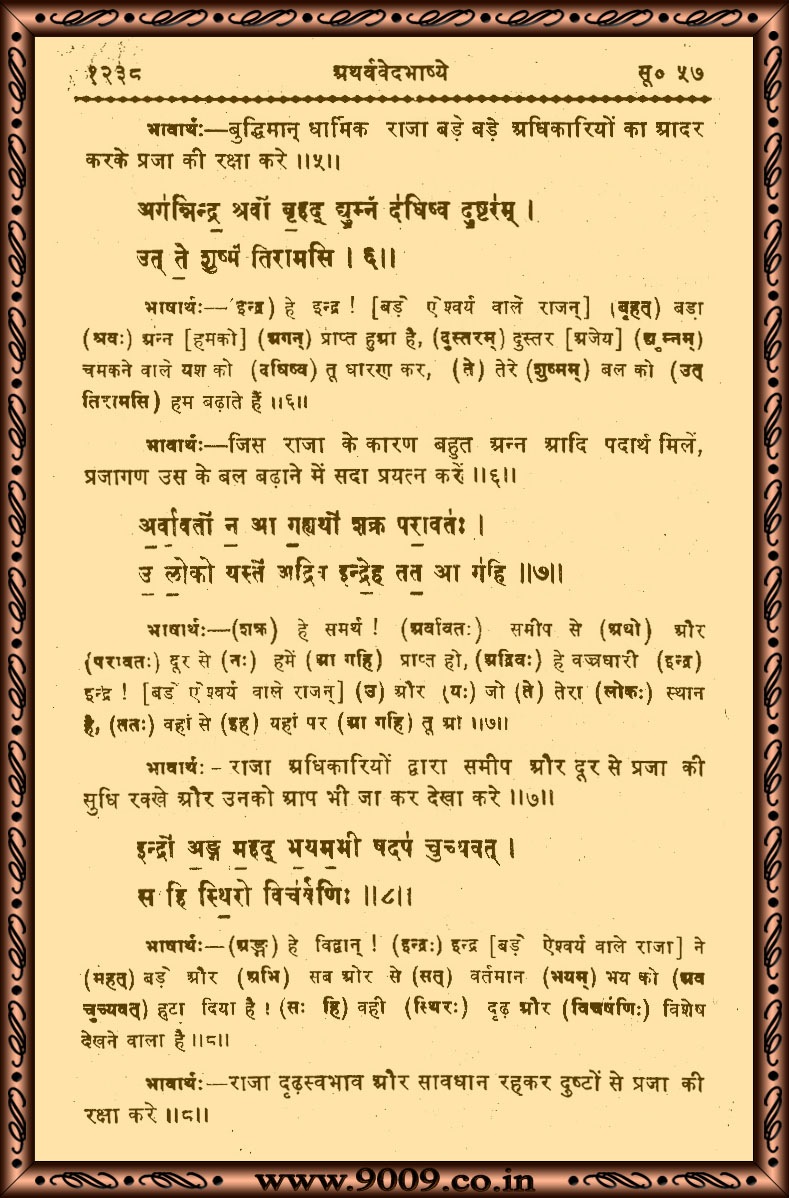 १२३८ अथर्ववेदभाष्ये सू० ५७
भावार्थः—बुद्धिमान् धार्मिक राजा बड़े बड़े अधिकारियों का आदर
करके प्रजा की रक्षा करे ॥५॥
अग॑न्निन्द्र॒ श्रवो॑ बृ॒हद् द्यु॒म्नं द॑धिष्व दु॒ष्टर॑म् ।
उत् ते॒ शुष्मं॑ तिरामसि । ६॥
भाषार्थः—(इन्द्र) हे इन्द्र ! [बड़े ऐश्वर्य वाले राजन्] (बृहत्) बड़ा
(श्रवः) अन्न [हमको] (अगन्) प्राप्त हुआ है, (दुस्तरम्) दुस्तर [अजेय] (द्युम्नम्)
चमकने वाले यश को (दधिष्व) तू धारण कर, (ते) तेरे (शुष्मम्) बल को (उत्
तिरामसि) हम बढ़ाते हैं ॥६॥
भावार्थः—जिस राजा के कारण बहुत अन्न आदि पदार्थ मिलें,
प्रजागण उस के बल बढ़ाने में सदा प्रयत्न करें ॥६॥
अ॒र्वा॒वतो॑ न॒ आ ग॒ह्यथो॑ शक्र परा॒वतः॑ ।
उ॒ लो॒को यस्ते॑ अद्रिव इन्द्रे॒ह तत॒ आ ग॑हि ॥७॥
भाषार्थः—(शक्र) हे समर्थ ! (अर्वावतः) समीप से (अथो) और
(परावतः) दूर से (नः) हमें (आ गहि) प्राप्त हो, (अद्रिवः) हे वज्रधारी (इन्द्र)
इन्द्र ! [बड़े ऐश्वर्य वाले राजन्] (उ) और (यः) जो (ते) तेरा (लोकः) स्थान
है, (ततः) वहां से (इह) यहां पर (आ गहि) तू आ ॥७॥
भावार्थः - राजा अधिकारियों द्वारा समीप और दूर से प्रजा की
सुधि रक्खे और उनको आप भी जा कर देखा करे ॥७॥
इन्द्रो॑ अ॒ङ्ग म॒हद् भ॒यम॒भी षदप॑ चुच्यवत् ।
स हि स्थि॒रो विच॑र्षणिः ॥८॥
भाषार्थः—(अङ्ग) हे विद्वान् ! (इन्द्रः) इन्द्र [बड़े ऐश्वर्य वाले राजा] ने
(महत्) बड़े और (अभि) सब ओर से (सत्) वर्तमान (भयम्) भय को (अव
चुच्यवत्) हटा दिया है ! (सः हि) वही (स्थिरः) दृढ़ और (विचर्षणिः) विशेष
देखने वाला है ॥८॥
भावार्थः—राजा दृढ़स्वभाव और सावधान रहकर दुष्टों से प्रजा की
रक्षा करे ॥८॥
www.9009.co.in